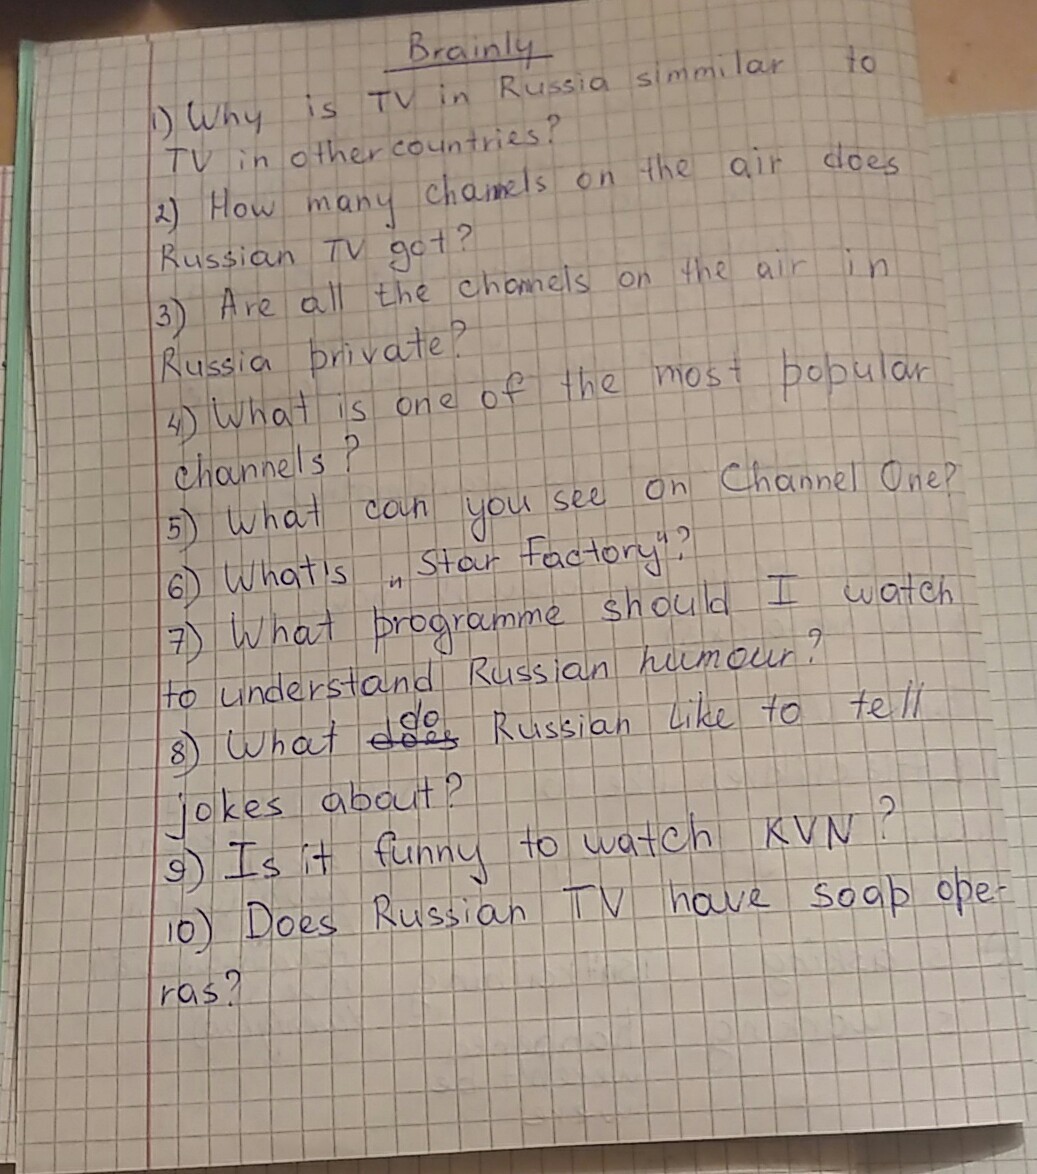 Brainly
1) Why is TV in Russia simmilar to
TV in other countries?
2) How many channels on the air does
Russian TV got?
3) Are all the channels on the air in
Russia private?
4) What is one of the most popular
channels?
5) What can you see on Channel One?
6) What's „Star Factory"?
7) What programme should I watch
to understand Russian humour?
8) What does do Russian like to tell
jokes about?
9) Is it funny to watch KVN?
10) Does Russian TV have soap ope-
ras?